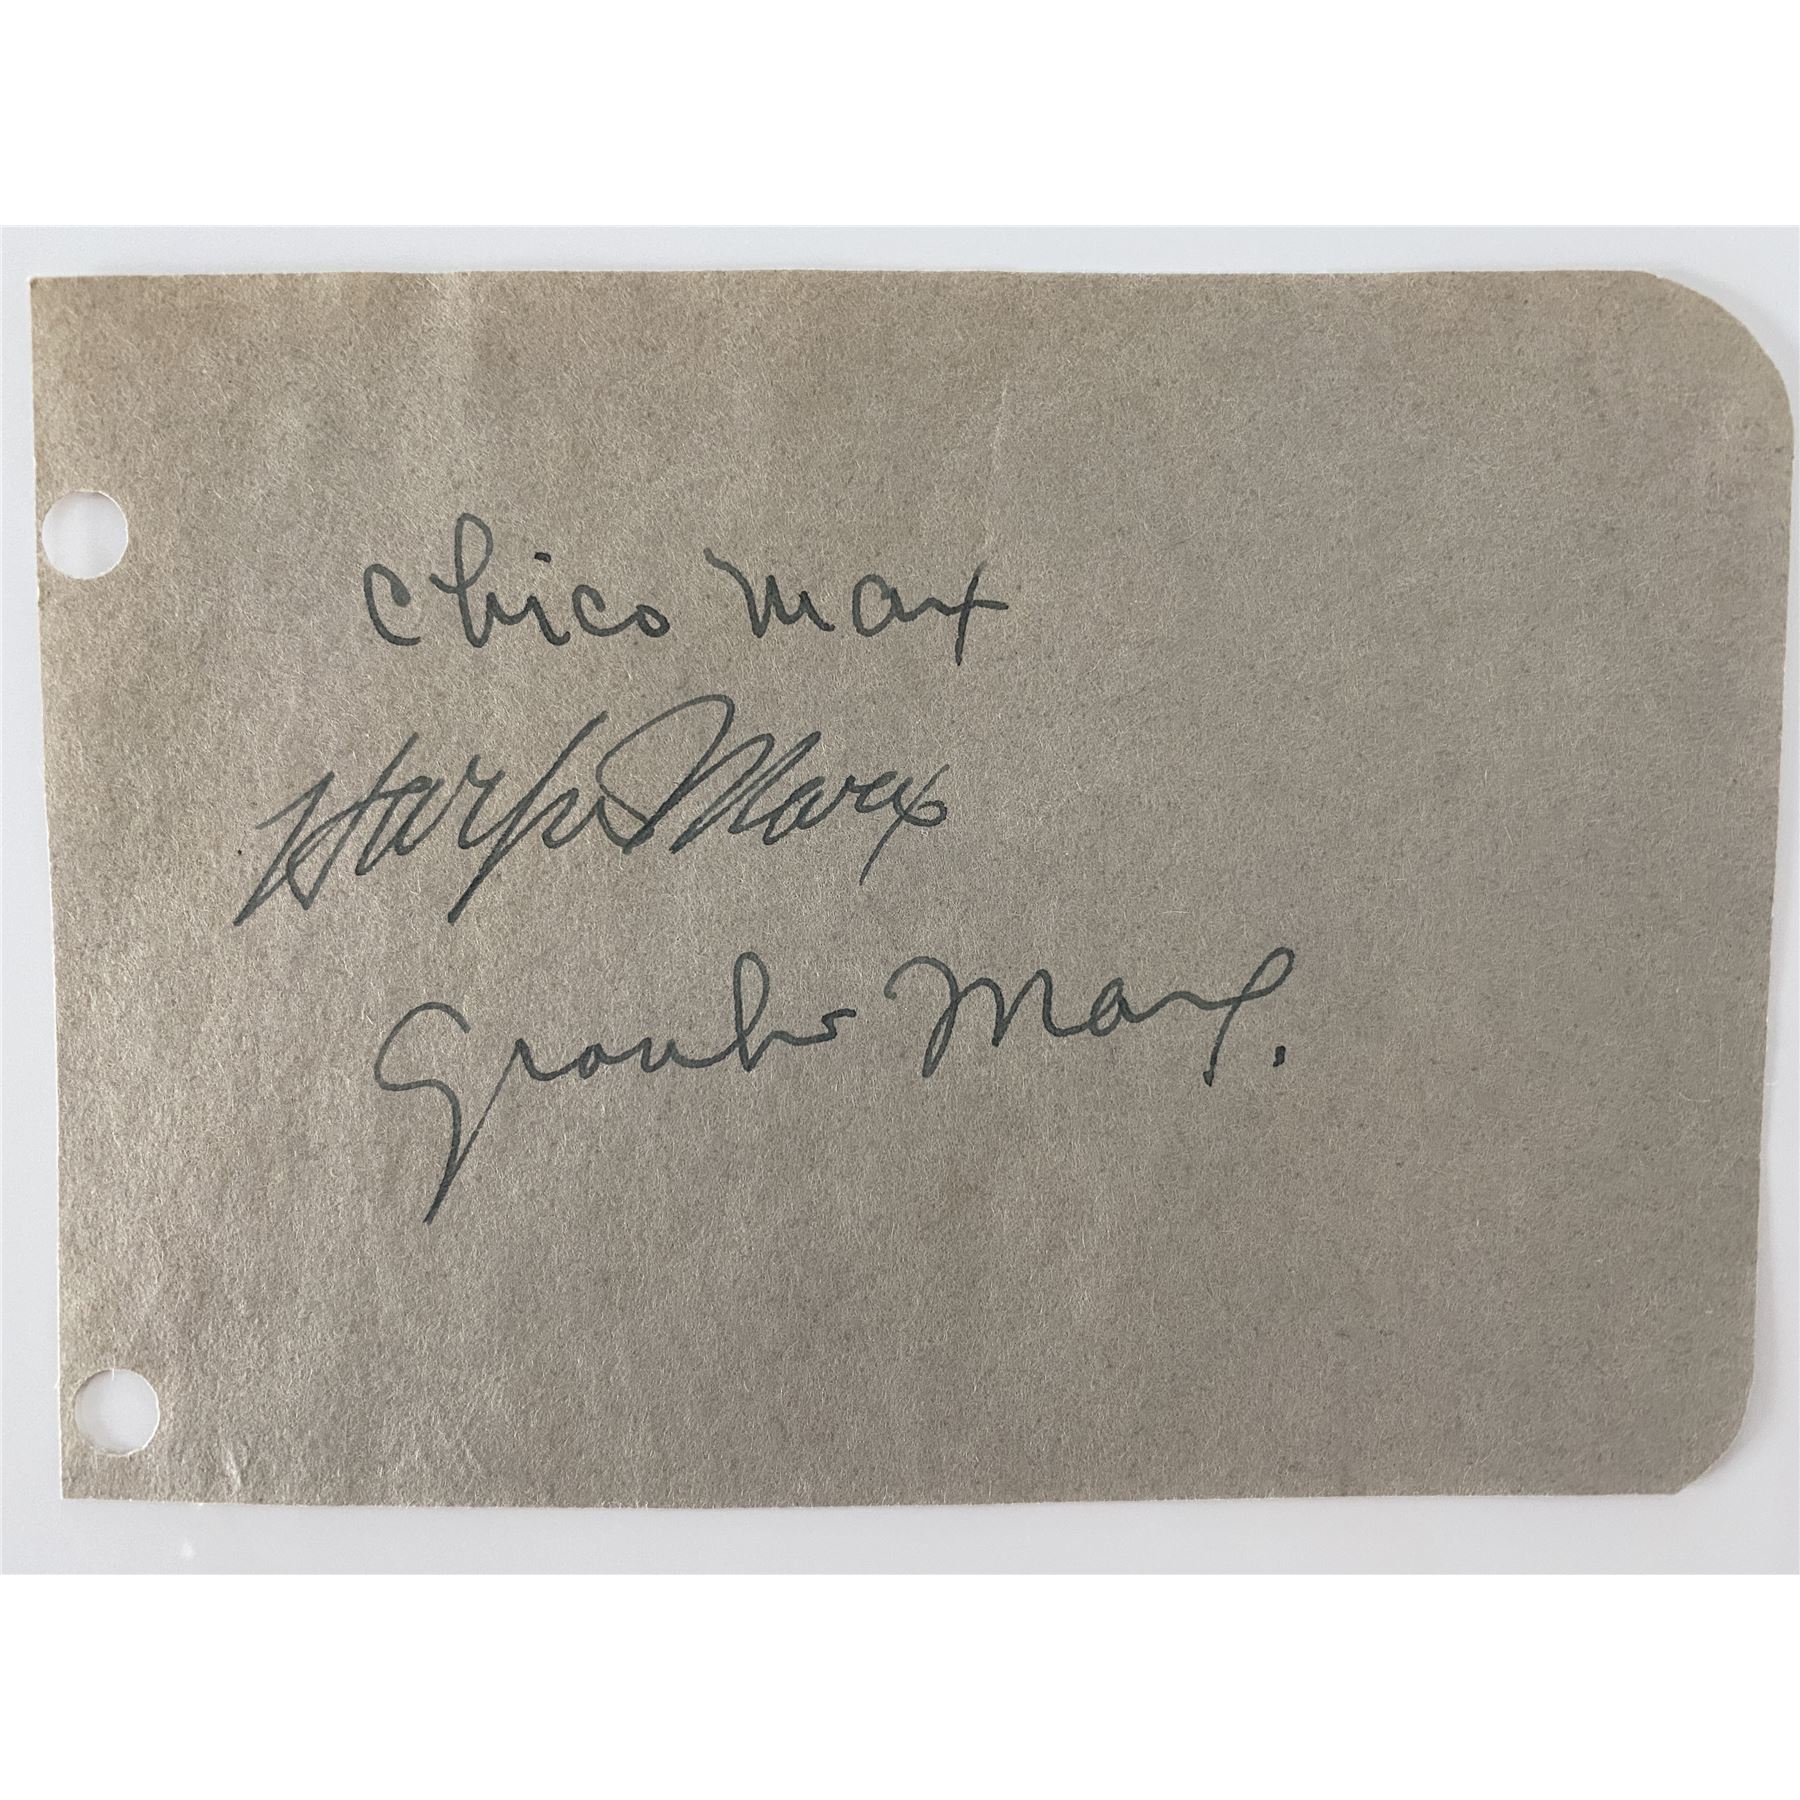 Chico Marx
Harpo Marx
Groucho Marx.